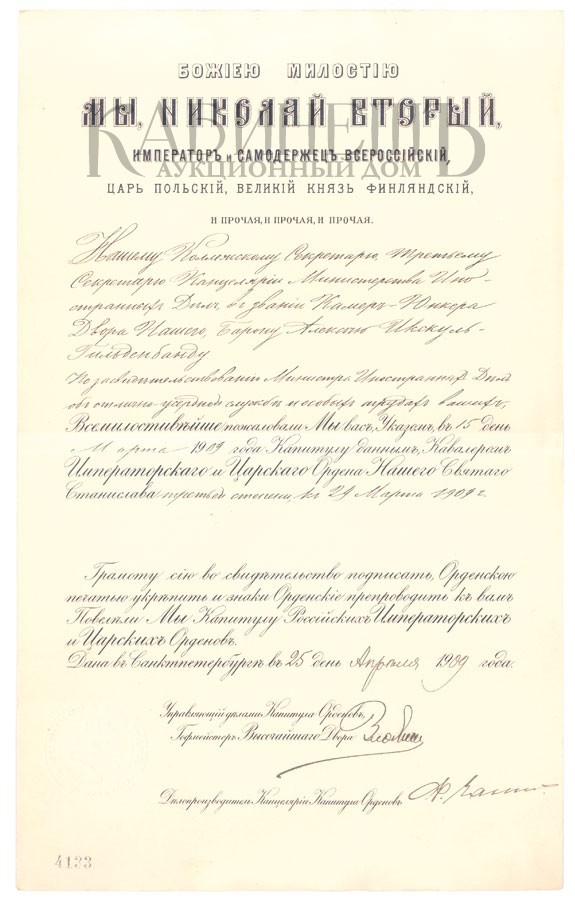 БОЖІЕЮ МИЛОСТІЮ
МЫ, НИКОЛАЙ ВТОРЫЙ,
КАБИНЕТЪ
ИМПЕРАТОРЪ и САМОДЕРЖЕЦЪ ВСЕРОССІЙСКІЙ,
АУКЦИОННЫЙ ДОМ
ЦАРЬ ПОЛЬСКІЙ, ВЕЛИКІЙ КНЯЗЬ ФИНЛЯНДСКІЙ,
И ПРОЧАЯ, И ПРОЧАЯ, И ПРОЧАЯ.
Нашему Коллежскому Секретарю, третьему
Секретарю Канцеляріи Министерства Ино-
странныхъ Дѣлъ, въ званіи Камеръ-Юнкера
Двора Нашего, Барону Алексѣю Икскуль-
Гильденбанду
По засвидѣтельствованію Министра Иностранныхъ Дѣлъ
объ отлично-усердной службѣ и особыхъ трудахъ вашихъ,
Всемилостивѣйше пожаловали Мы васъ, Указомъ, въ 15 день
Марта 1909 года Капитулу даннымъ, Кавалеромъ
Императорскаго и Царскаго Ордена Нашего Святаго
Станислава третьей степени, къ 29 Марта 1909 г.
Грамоту сію во свидѣтельство подписать, Орденскою
печатью укрѣпить и знаки Орденскіе препроводить къ вамъ
Повелѣли Мы Капитулу Россійскихъ Императорскихъ
и Царскихъ Орденовъ.
Дана въ Санктпетербургѣ въ 25 день Апрѣля 1909 года.
Управляющій дѣлами Капитула Орденовъ,
Гофмейстеръ Высочайшаго Двора
Дѣлопроизводитель Канцеляріи Капитула Орденовъ
4133